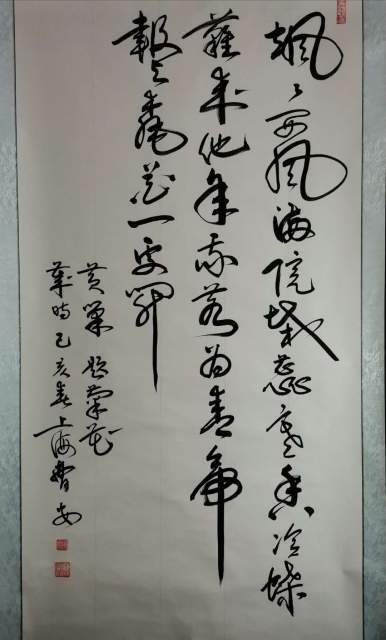 颯々西风满院栽蕊寒香冷蝶
难来他年我若为青帝
报与桃花一处开
黄巢题菊花
岁时己亥春上海曹